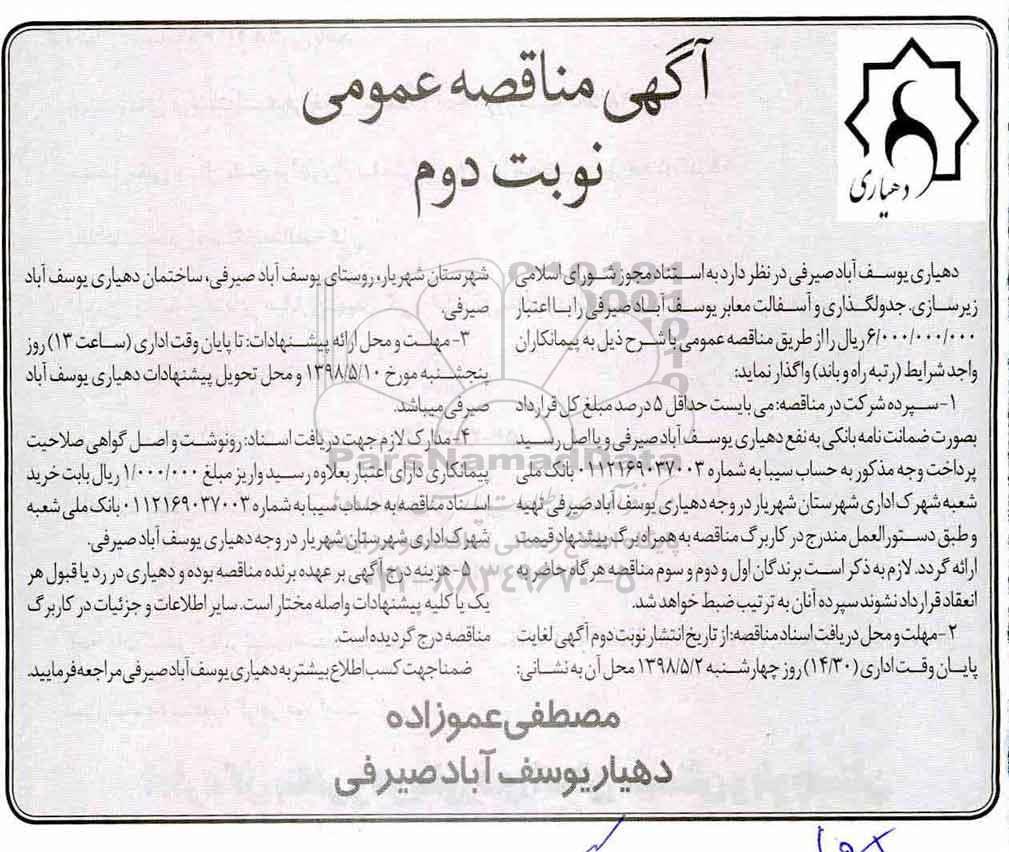 آگهی مناقصه عمومی
نوبت دوم
دهیاری
دهیاری یوسف آباد صیرفی در نظر دارد به استناد مجوز شورای اسلامی
زیرسازی، جدولگذاری و آسفالت معابر یوسف آباد صیرفی را با اعتبار
۶/۰۰۰/۰۰۰/۰۰۰ ریال را از طریق مناقصه عمومی با شرح ذیل به پیمانکاران
واجد شرایط (رتبه راه و باند) واگذار نماید:
۱- سپرده شرکت در مناقصه: می بایست حداقل ۵ درصد مبلغ کل قرارداد
بصورت ضمانت نامه بانکی به نفع دهیاری یوسف آباد صیرفی و یا اصل رسید
پرداخت وجه مذکور به حساب سیبا به شماره ۰۱۱۲۱۶۹۰۳۷۰۰۳ بانک ملی
شعبه شهرک اداری شهرستان شهریار در وجه دهیاری یوسف آباد صیرفی تهیه
و طبق دستورالعمل مندرج در کاربرگ مناقصه به همراه برگ پیشنهاد قیمت
ارائه گردد. لازم به ذکر است برندگان اول و دوم و سوم مناقصه هرگاه حاضر به
انعقاد قرارداد نشوند سپرده آنان به ترتیب ضبط خواهد شد.
۲- مهلت و محل دریافت اسناد مناقصه: از تاریخ انتشار نوبت دوم آگهی لغایت
پایان وقت اداری (۱۴/۳۰) روز چهارشنبه ۱۳۹۸/۵/۲ محل آن به نشانی:
شهرستان شهریار، روستای یوسف آباد صیرفی، ساختمان دهیاری یوسف آباد
صیرفی.
۳- مهلت و محل ارائه پیشنهادات: تا پایان وقت اداری (ساعت ۱۳) روز
پنجشنبه مورخ ۱۳۹۸/۵/۱۰ و محل تحویل پیشنهادات دهیاری یوسف آباد
صیرفی میباشد.
۴- مدارک لازم جهت دریافت اسناد: رونوشت و اصل گواهی صلاحیت
پیمانکاری دارای اعتبار بعلاوه رسید واریز مبلغ ۱/۰۰۰/۰۰۰ ریال بابت خرید
اسناد مناقصه به حساب سیبا به شماره ۰۱۱۲۱۶۹۰۳۷۰۰۳ بانک ملی شعبه
شهرک اداری شهرستان شهریار در وجه دهیاری یوسف آباد صیرفی.
۵- هزینه درج آگهی بر عهده برنده مناقصه بوده و دهیاری در رد یا قبول هر
یک یا کلیه پیشنهادات واصله مختار است. سایر اطلاعات و جزئیات در کاربرگ
مناقصه درج گردیده است.
ضمنا جهت کسب اطلاع بیشتر به دهیاری یوسف آباد صیرفی مراجعه فرمایید.
مصطفی عموزاده
دهیار یوسف آباد صیرفی
ParsNamadData
۰۲۱-۸۸۳۴۹۶۷۰-۵